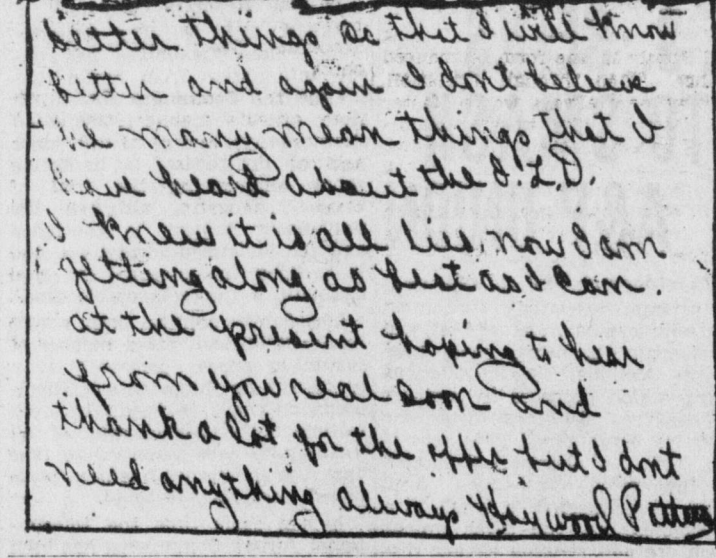 better things so that I will know
better and again I dont believe
the many mean things that I
have heard about the I.L.D.
I knew it is all lies, now I am
getting along as best as I can
at the present hoping to hear
from you real soon and
thank a lot for the offer but I dont
need anything always Haywood Patterson